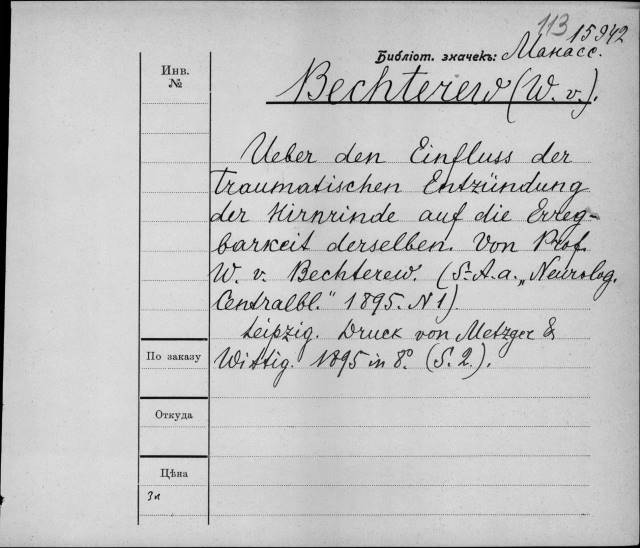 113 15942
Библіот. значекъ: Манасс.
Инв.
№
Bechterew (W. v.).
Ueber den Einfluss der
traumatischen Entzündung
der Hirnrinde auf die Erreg-
barkeit derselben. Von Prof.
W. v. Bechterew. (S.-A. a. „Neurolog.
Centralbl.“ 1895. N 1)
Leipzig. Druck von Metzger &
Wittig. 1895 in 8°. (S. 2.).
По заказу
Откуда
Цѣна